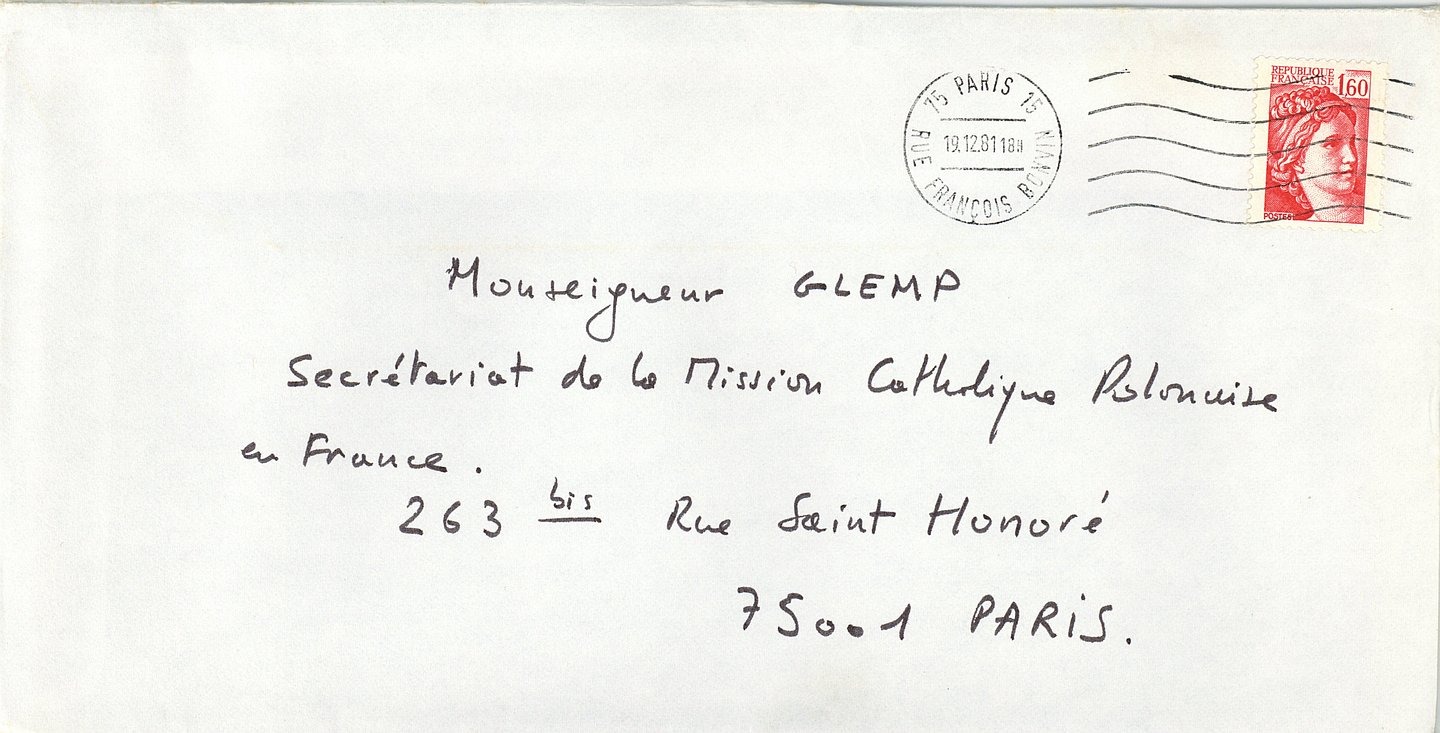 75 PARIS 15
19.12.81 18H
RUE FRANÇOIS BONVIN
REPUBLIQUE
FRANÇAISE
1,60
POSTES
Monseigneur GLEMP
Secrétariat de la Mission Catholique Polonaise
en France.
263 bis Rue Saint Honoré
75001 PARIS.